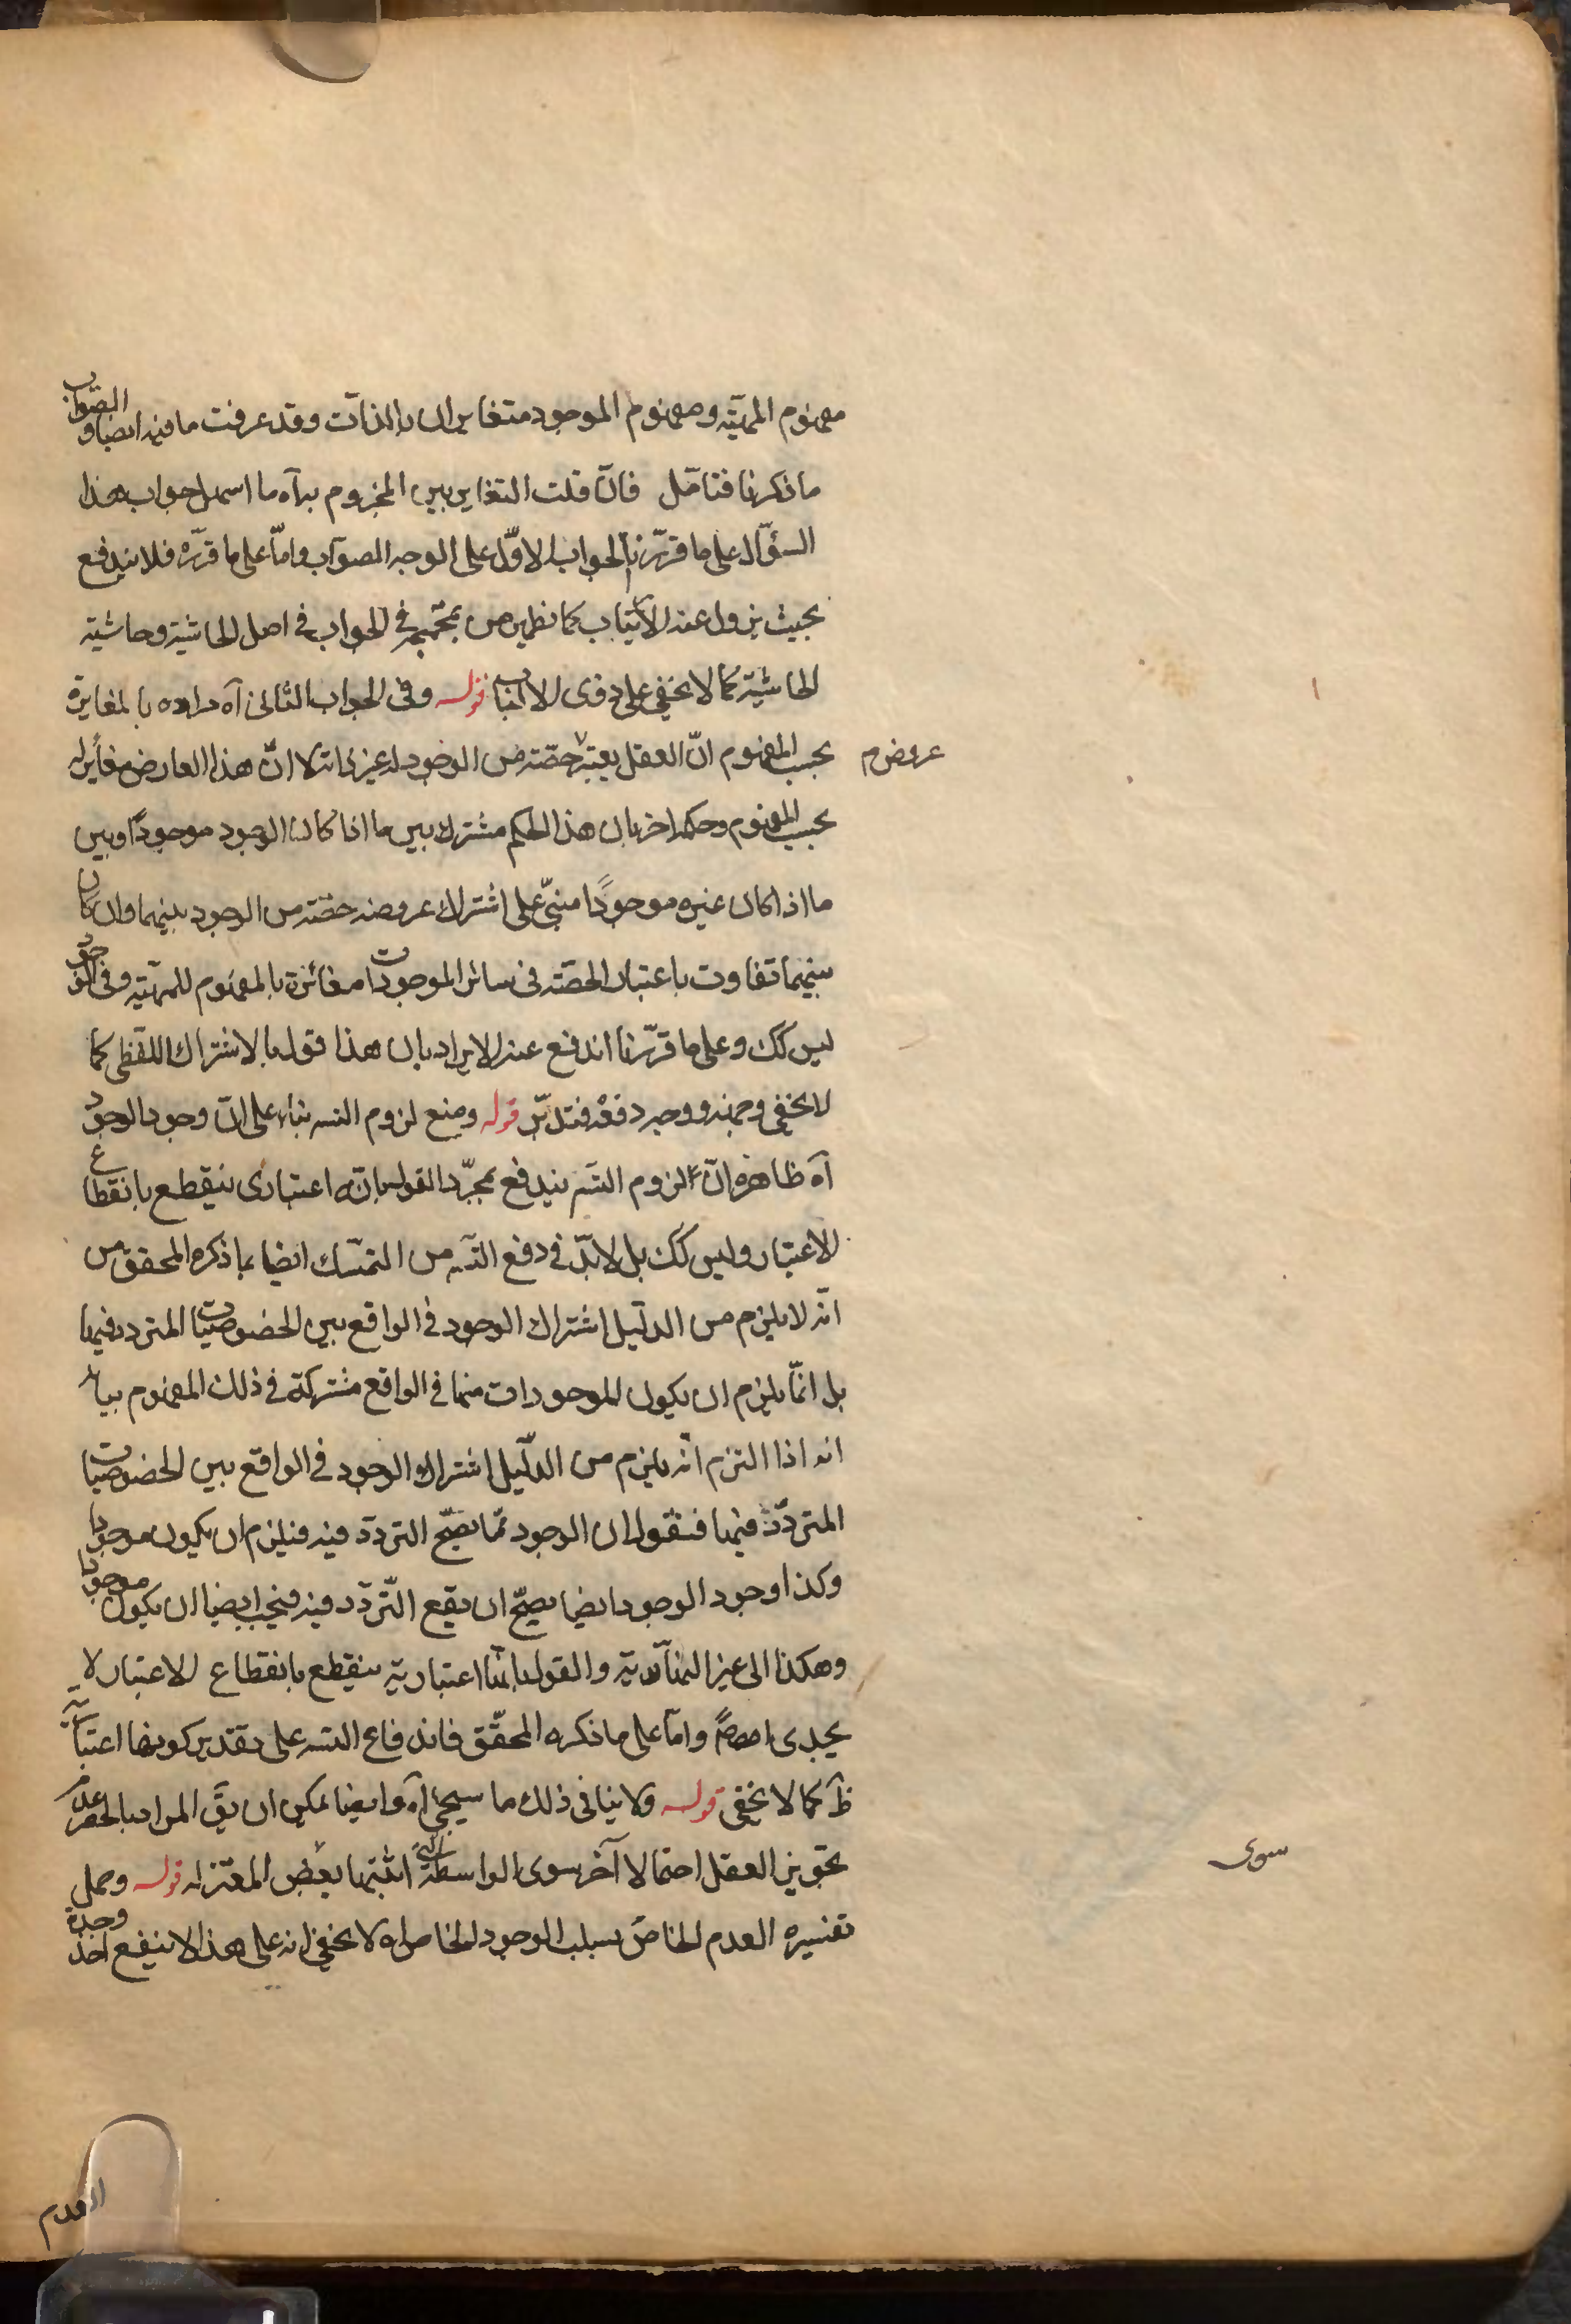 مفهوم المهيّة ومفهوم الموجود متغايران بالذات وقد عرفت ما فيه ايضا والصواب
ما ذكرنا فتامّل فان قلت التغاير بين المجزوم به آه ما اسهل جواب هذا
السؤال على ما قرّرنا الجواب الاوّل على الوجه الصواب وامّا على ما قرّره فلا يندفع
بحيث يزول عنه الارتياب كما يظهر من تجمجمه في الجواب في اصل الحاشية وحاشية
الحاشية كما لا يخفى على ذوى الالباب قوله وفى الجواب الثانى آه مراده بالمغايرة
بحسب المفهوم انّ العقل يعتبر حصّة من الوجود له غير ذاته الا انّ هذا العارض مغاير له
عروض م
بحسب المفهوم وحكمه اخر بان هذا الحكم مشترك بين ما اذا كان الوجود موجودًا وبين
ما اذا كان غيره موجودًا مبنىّ على اشتراك عروضه حصّة من الوجود بينهما وان كان
بينهما تفاوت باعتبار الحصّة فى سائر الموجودات مغائرة بالمفهوم للمهيّة وفى الوجود
ليس كك وعلى ما قرّرنا اندفع عنه الايراد بان هذا قول بالاشتراك اللفظى كما
لا يخفى وجهه ووجه دفعه فتدبّر قوله ومنع لزوم التسه بناء على انّ وجود الوجود
آه ظاهره انّ لزوم التسه يندفع بمجرّد القول بانّه اعتبارى ينقطع بانقطاع
الاعتبار وليس كك بل لا بدّ فى دفع التسه من التمسّك ايضا بما ذكره المحقق من
انّه لا يلزم من الدليل اشتراك الوجود فى الواقع بين الخصوصيّات المتردد فيها
بل انّما يلزم ان يكون الموجودات منها فى الواقع مشتركة فى ذلك المفهوم بيانه
انه اذا التزم انّه يلزم من الدّليل اشتراك الوجود فى الواقع بين الخصوصيّات
المتردّد فيها فنقول ان الوجود ممّا يصحّ التردّد فيه فيلزم ان يكون موجودا
وكذا وجود الوجود ايضا يصحّ ان يقع التّردّد فيه فيجب ايضا ان يكون موجودا
وهكذا الى غير النهاية والقول بانّها اعتبارية ينقطع بانقطاع الاعتبار لا
يجدى وامّا على ما ذكره المحقّق فاندفاع التسه على تقدير كونها اعتباريّة
ظ كما لا يخفى قوله ولا ينافى ذلك ما سيجئ آه وايضا يمكن ان يق المراد بالحصر عدم
تجويز العقل احتمالا آخر سوى الواسطة التى اثبتها بعض المعتزله قوله وحمل
سوى
تفسيره العدم الخاص بسلب الوجود الخاص اه لا يخفى انه على هذا لا ينفع اخذ وحدة
العدم